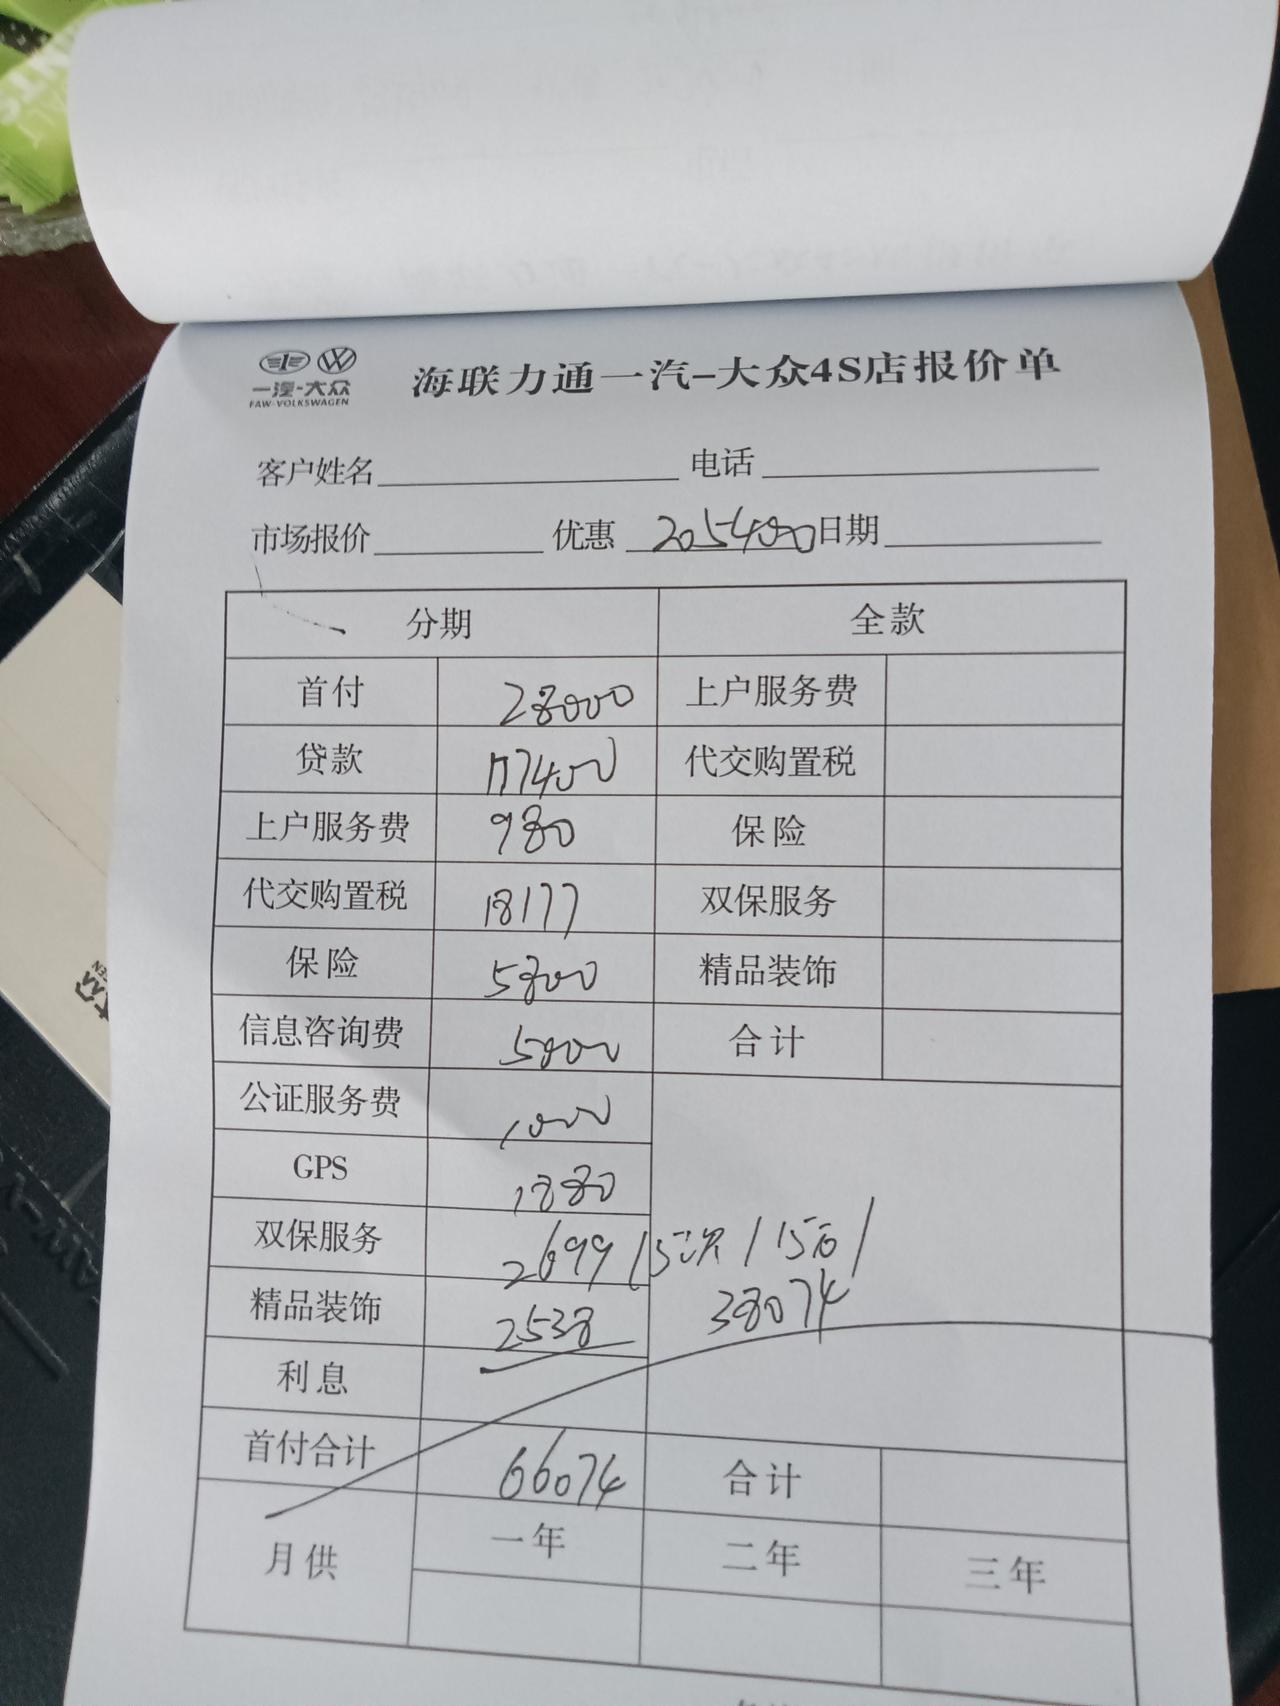 一汽-大众
FAW-VOLKSWAGEN
海联力通一汽-大众4S店报价单
客户姓名 电话
市场报价 优惠 205400 日期
分期 全款
首付 28000 上户服务费
贷款 177400 代交购置税
上户服务费 980 保险
代交购置税 18177 双保服务
保险 5800 精品装饰
信息咨询费 5000 合计
公证服务费 1000
GPS 1880
双保服务 2699
精品装饰 2538 38074
利息
首付合计 66074 合计
月供 一年 二年 三年